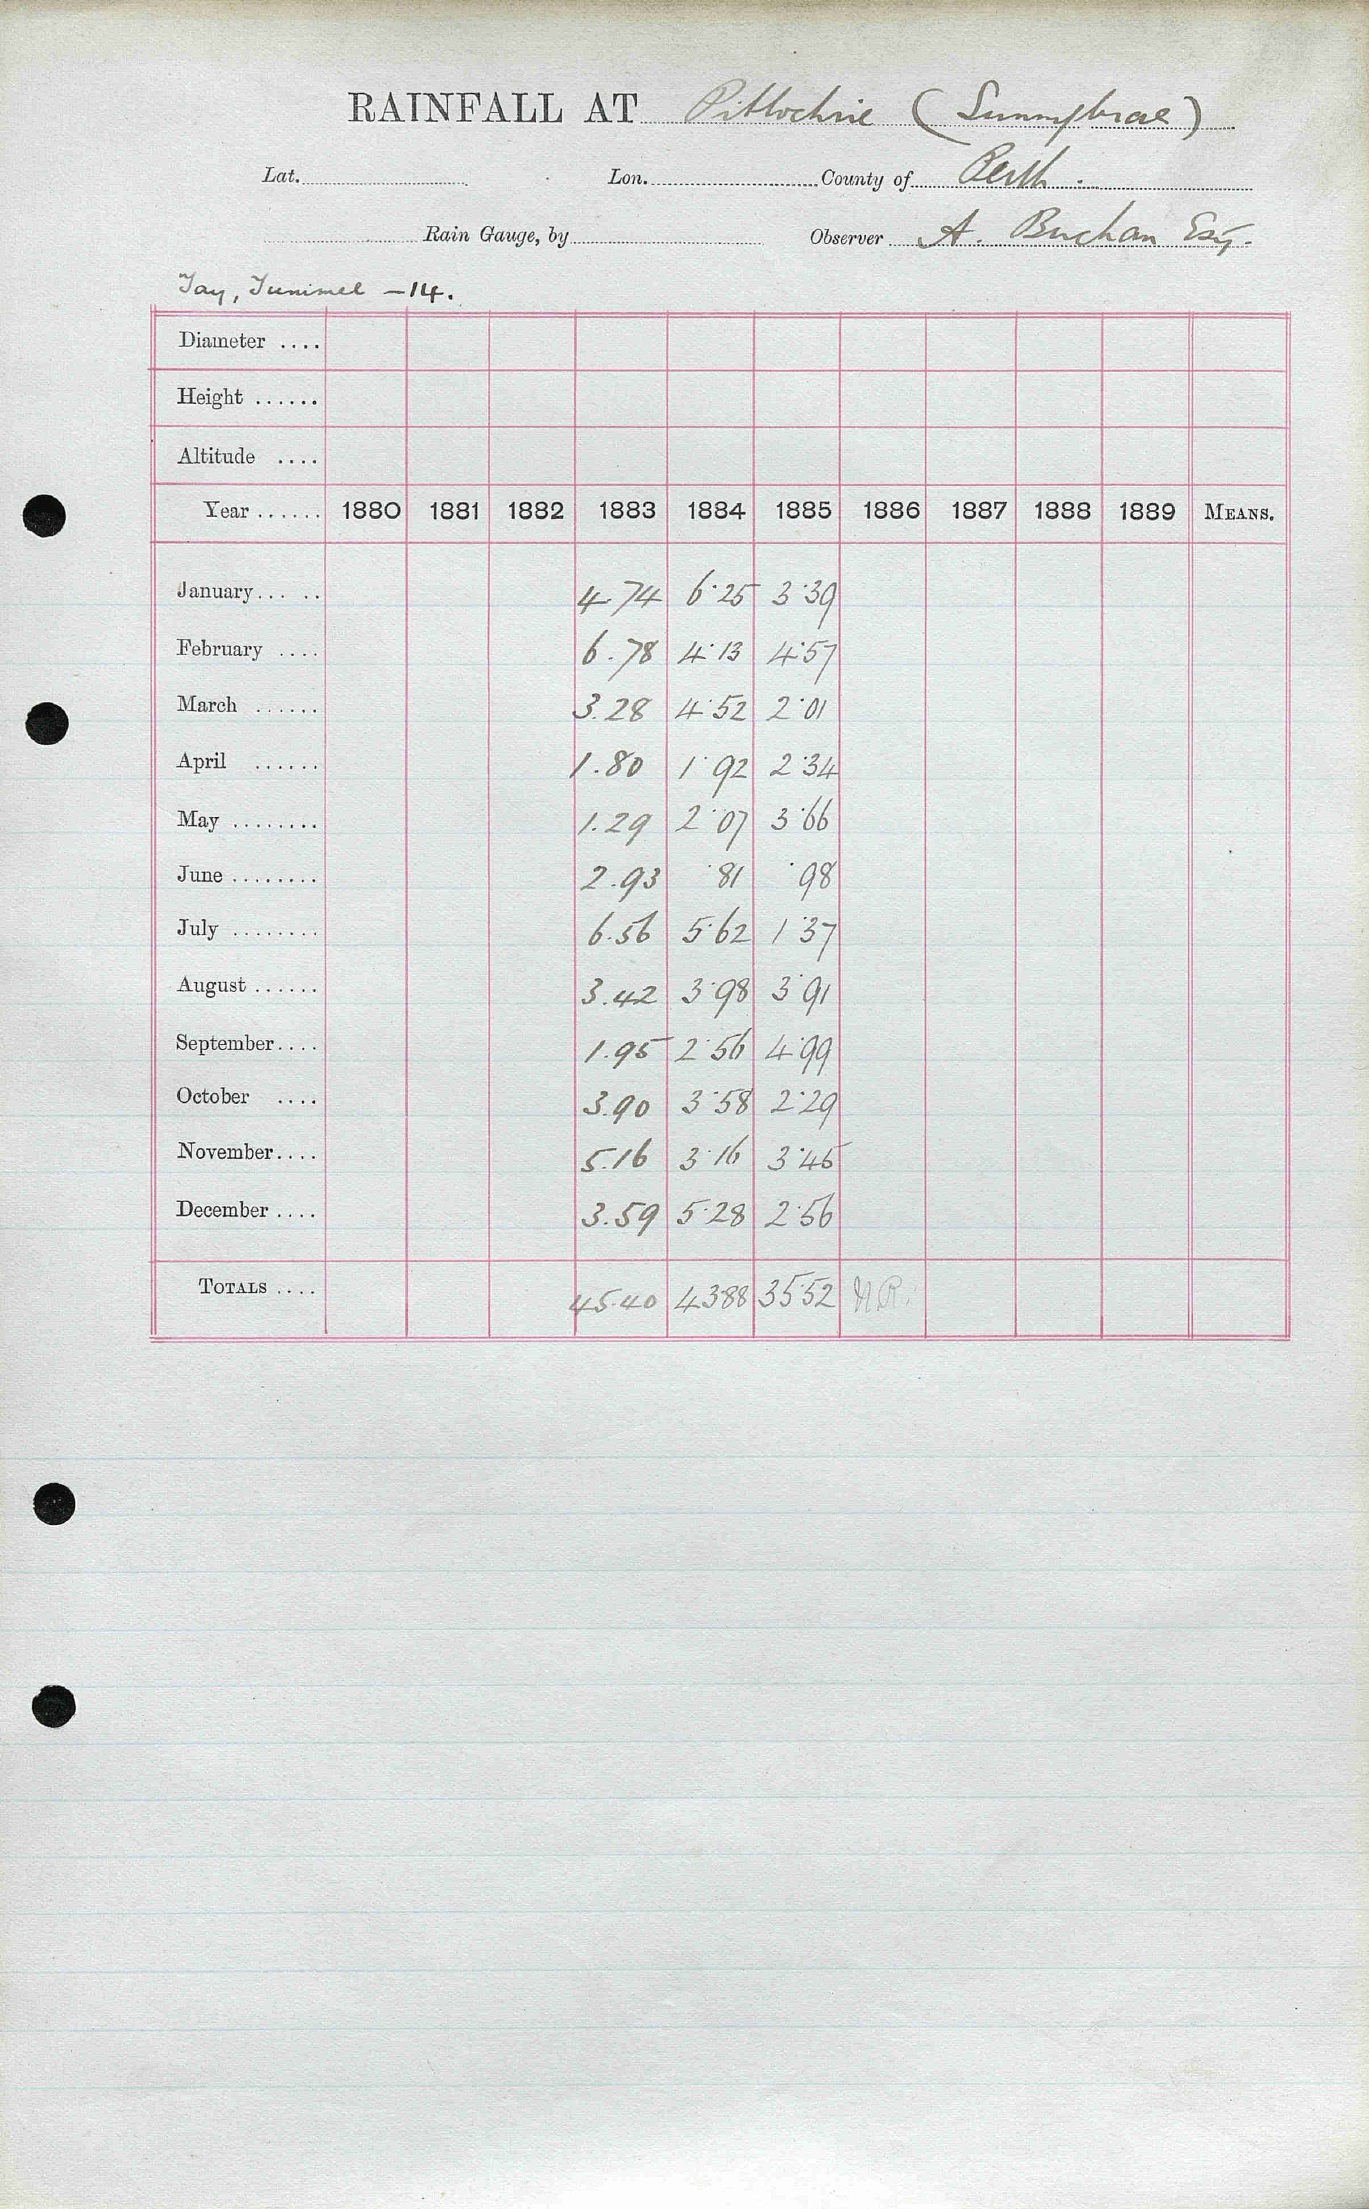 RAINFALL AT Pitlochrie (Sunnybrae)
Lat. Lon. County of Perth.
Rain Gauge, by Observer A. Buchan Esq.
Tay, Tummel - 14.
Diameter ....
Height ......
Altitude ....
Year ...... 1880 1881 1882 1883 1884 1885 1886 1887 1888 1889 MEANS.
January... .. 4.74 6.25 3.39
February .... 6.78 4.13 4.57
March ...... 3.28 4.52 2.01
April ...... 1.80 1.92 2.34
May ........ 1.29 2.07 3.66
June ........ 2.93 .81 .98
July ........ 6.56 5.62 1.37
August ...... 3.42 3.98 3.91
September.... 1.95 2.56 4.99
October .... 3.90 3.58 2.29
November.... 5.16 3.16 3.45
December .... 3.59 5.28 2.56
TOTALS .... 45.40 43.88 35.52 N.R.